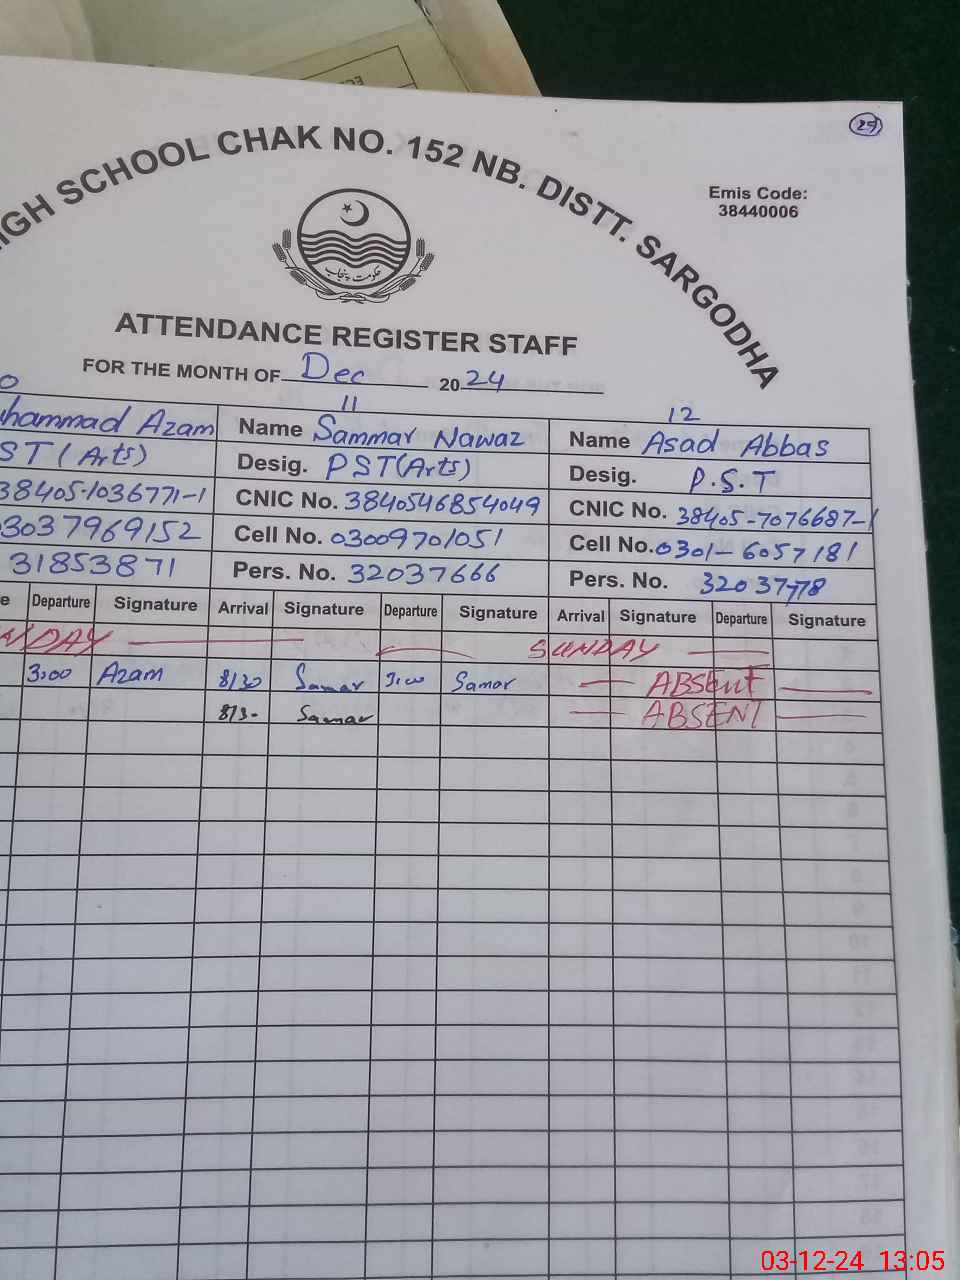 25
HIGH SCHOOL CHAK NO. 152 NB. DISTT. SARGODHA
Emis Code:
38440006
حکومت پنجاب
ATTENDANCE REGISTER STAFF
FOR THE MONTH OF Dec 2024
11 12
uhammad Azam Name Sammar Nawaz Name Asad Abbas
ST (Arts) Desig. PST(Arts) Desig. P.S.T
38405-1036771-1 CNIC No. 3840546854049 CNIC No. 38405-7076687-1
03037969152 Cell No. 03009701051 Cell No. 0301-6057181
31853871 Pers. No. 32037666 Pers. No. 32037778
e Departure Signature Arrival Signature Departure Signature Arrival Signature Departure Signature
NDAY SUNDAY
3:00 Azam 8/30 Samar 3:00 Samar ABSEnt
8/3- Samar ABSENT
03-12-24 13:05